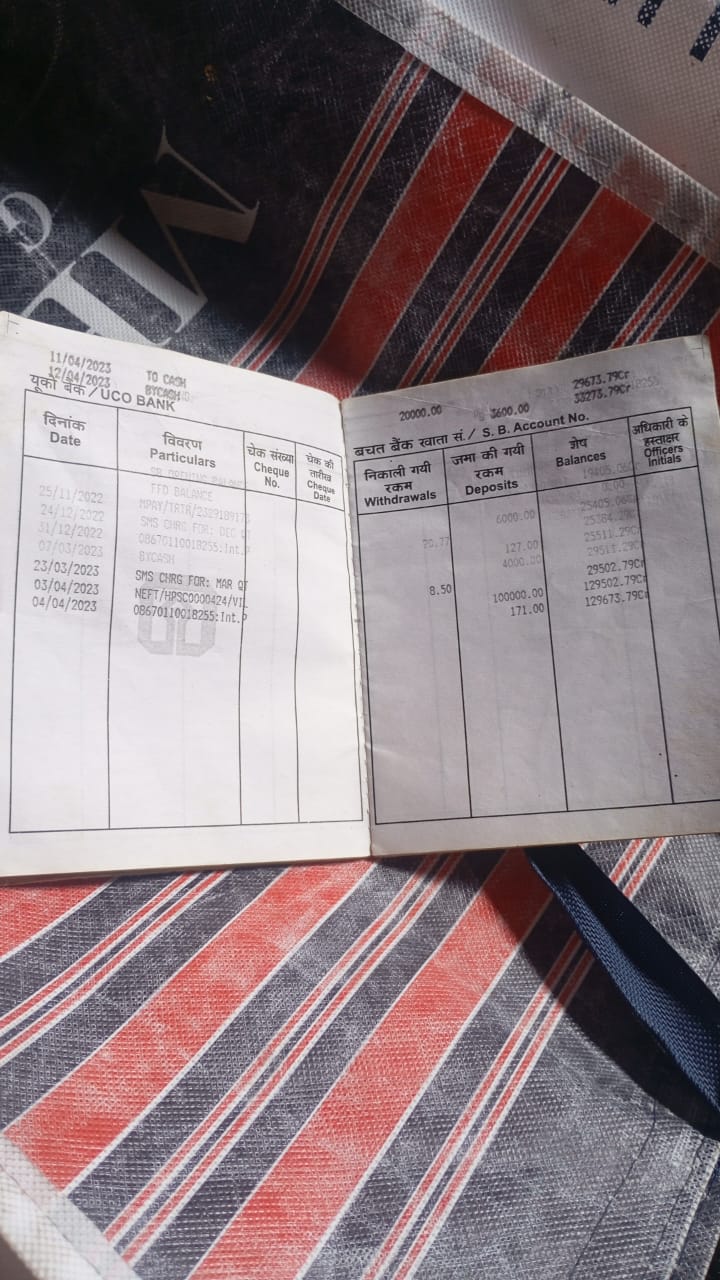 11/04/2023 TO CASH 20000.00 29673.79Cr
12/04/2023 BYCASH 3600.00 33273.79Cr
यूको बैंक / UCO BANK
बचत बैंक खाता सं. / S. B. Account No.
दिनांक Date
विवरण Particulars
चेक संख्या Cheque No.
चेक की तारीख Cheque Date
निकाली गयी रकम Withdrawals
जमा की गयी रकम Deposits
शेष Balances
अधिकारी के हस्ताक्षर Officers Initials
SB OPENING BALANCE 19405.06Cr
FFD BALANCE 0.00
25/11/2022 MPAY/TRTR/2329189173 6000.00 25405.06Cr
24/12/2022 SMS CHRG FOR: DEC QT 20.77 25384.29Cr
31/12/2022 08670110018255:Int.P 127.00 25511.29Cr
07/03/2023 BYCASH 4000.00 29511.29Cr
23/03/2023 SMS CHRG FOR: MAR QT 8.50 29502.79Cr
03/04/2023 NEFT/HPSC0000424/VIL 100000.00 129502.79Cr
04/04/2023 08670110018255:Int.P 171.00 129673.79Cr
M
G